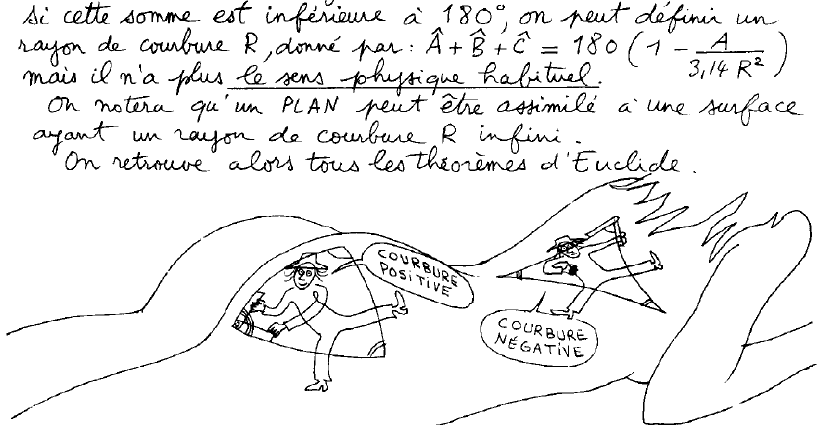 si cette somme est inférieure à 180°, on peut définir un
rayon de courbure R, donné par : Â + B̂ + Ĉ = 180 (1 - A / 3,14 R²)
mais il n'a plus le sens physique habituel.
On notera qu'un PLAN peut être assimilé à une surface
ayant un rayon de courbure R infini.
On retrouve alors tous les théorèmes d'Euclide.
COURBURE
POSITIVE
COURBURE
NÉGATIVE